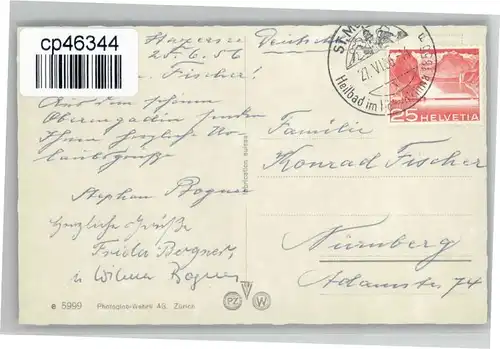 cp46344
25.6.56
Deutschland
Fischer!
Aus dem schönen
Oberengadin senden
Ihnen herzliche Ur-
laubsgrüße
Stephan Bogner
Herzliche Grüße
Frida Bogner,
u. Wilma Bogner
e 5999 Photoglob-Wehrli AG. Zürich
PZ W
ST. M
27.VI.56
Heilbad im
1856 m
25 HELVETIA
Familie
Konrad Fischer
Nürnberg
Adamstr. 74